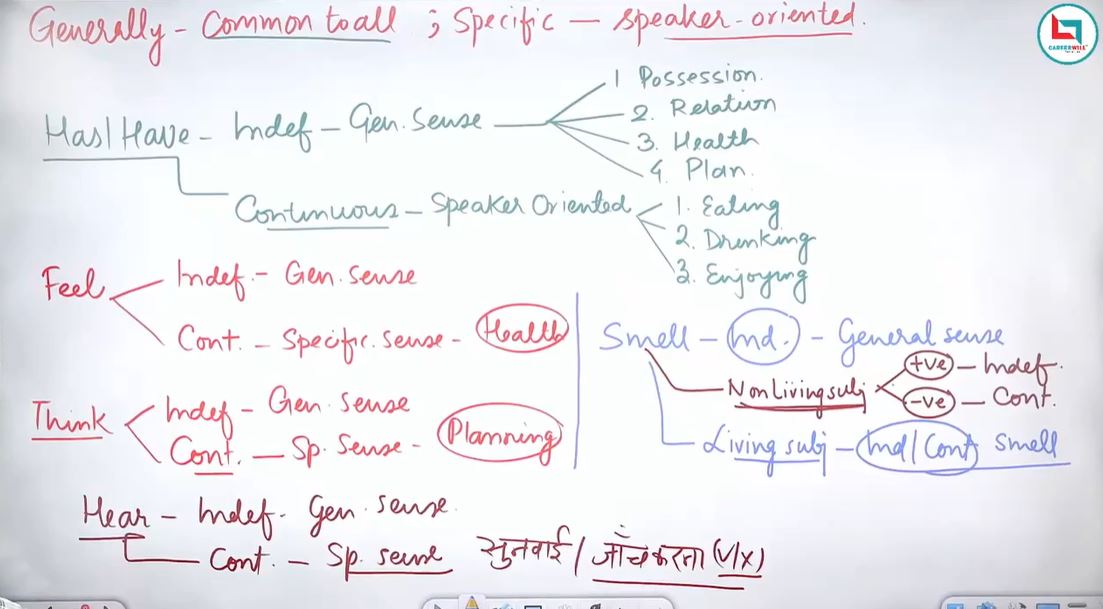 Generally - Common to all ; Specific - speaker-oriented.
CAREERWILL
Has/Have - Indef - Gen. Sense
1 Possession.
2. Relation
3. Health
4. Plan.
Continuous - Speaker Oriented
1. Eating
2. Drinking
3. Enjoying
Feel
Indef. - Gen. sense
Cont. - Specific. sense - Health
Think
Indef - Gen. sense
Cont. - Sp. Sense - Planning
Smell - Ind. - General sense
Non Living subj
+ve - Indef.
-ve - Cont.
Living subj - Ind/Cont smell
Hear - Indef - Gen. sense.
Cont. - Sp. sense सुनवाई / जाँच करना (✓/x)